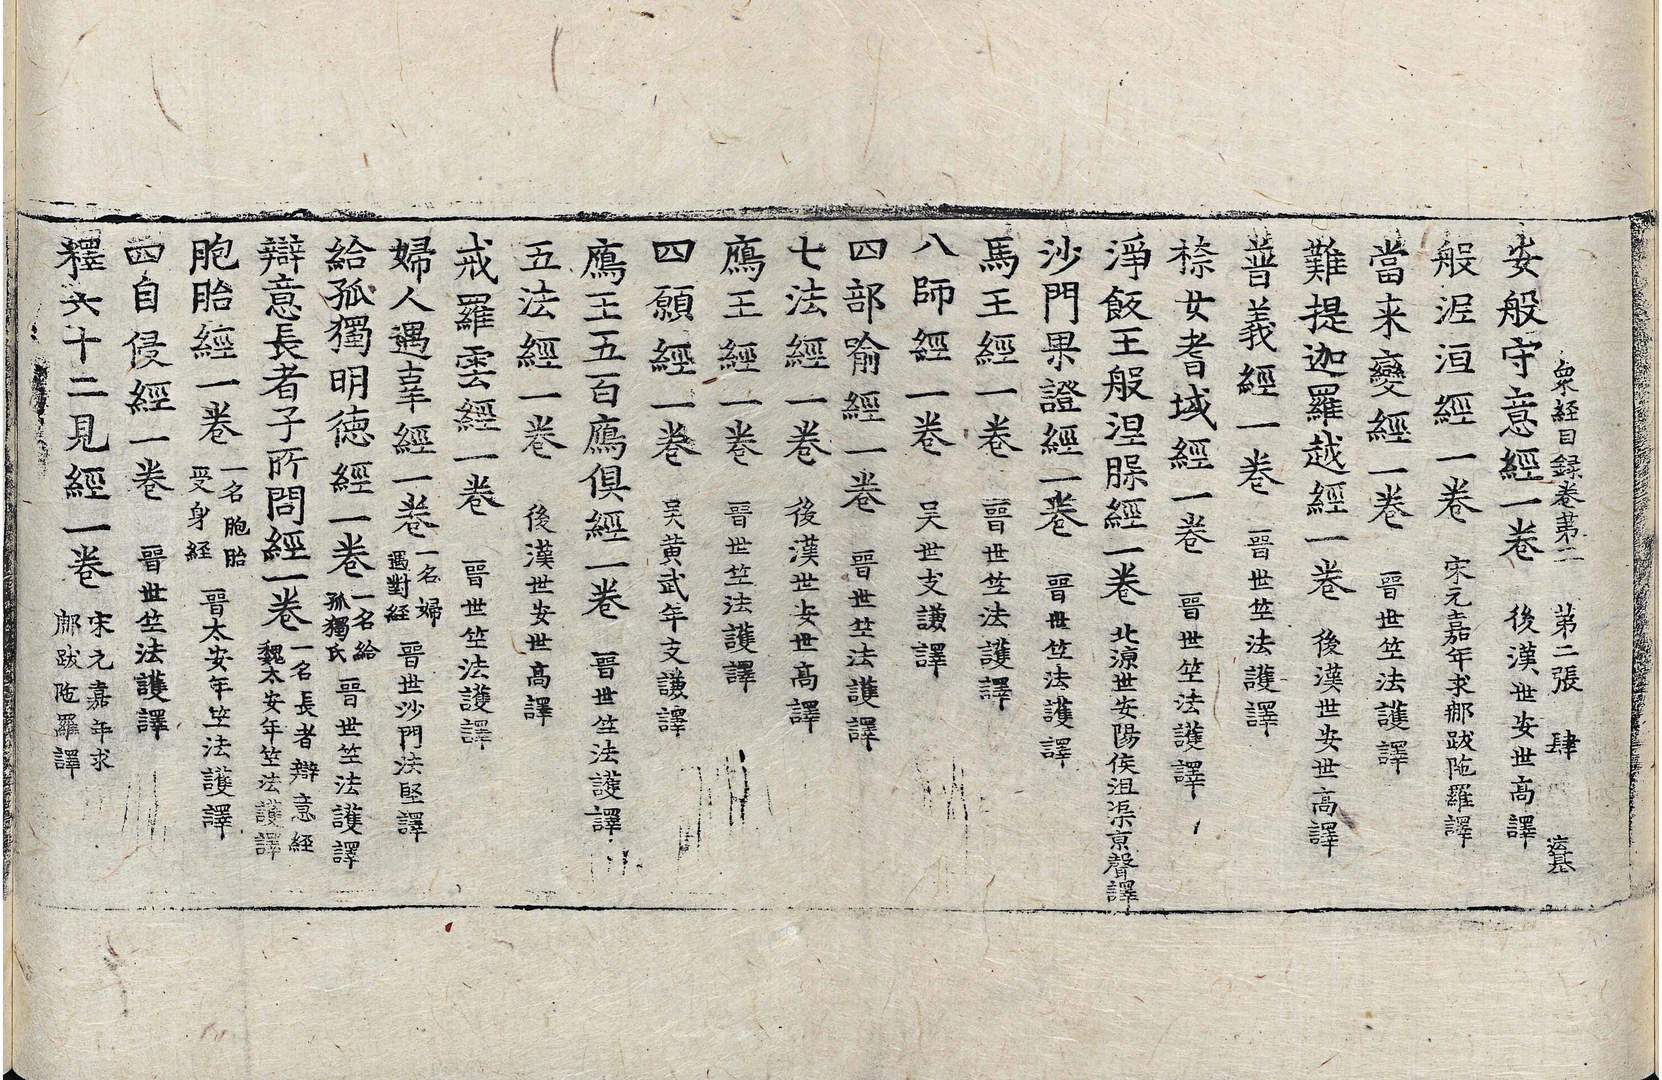 衆經目録卷苐二 第二張 肆
安般守意經一卷 後漢世安世高譯
般泥洹經一卷 宋元嘉年求那跋陁羅譯
當来變經一卷 晉世竺法護譯
難提迦羅越經一卷 後漢世安世高譯
普義經一卷 晉世竺法護譯
㮈女耆域經一卷 晉世竺法護譯
淨飯王般涅槃經一卷 北涼世安陽侯沮渠京聲譯
沙門果證經一卷 晉世竺法護譯
馬王經一卷 晉世竺法護譯
八師經一卷 吴世支謙譯
四部喻經一卷 晉世竺法護譯
七法經一卷 後漢世安世高譯
鷹王經一卷 晉世竺法護譯
四願經一卷 吴黄武年支謙譯
鷹王五百鷹俱經一卷 晉世竺法護譯
五法經一卷 後漢世安世高譯
戒羅雲經一卷 晉世竺法護譯
婦人遇辜經一卷 一名婦遇對經 晉世沙門法堅譯
給孤獨明德經一卷 一名給孤獨氏 晉世竺法護譯
辯意長者子所問經一卷 一名長者辯意經 魏太安年竺法護譯
胞胎經一卷 一名胞胎受身經 晉太安年竺法護譯
四自侵經一卷 晉世竺法護譯
釋六十二見經一卷 宋元嘉年求那跋陁羅譯